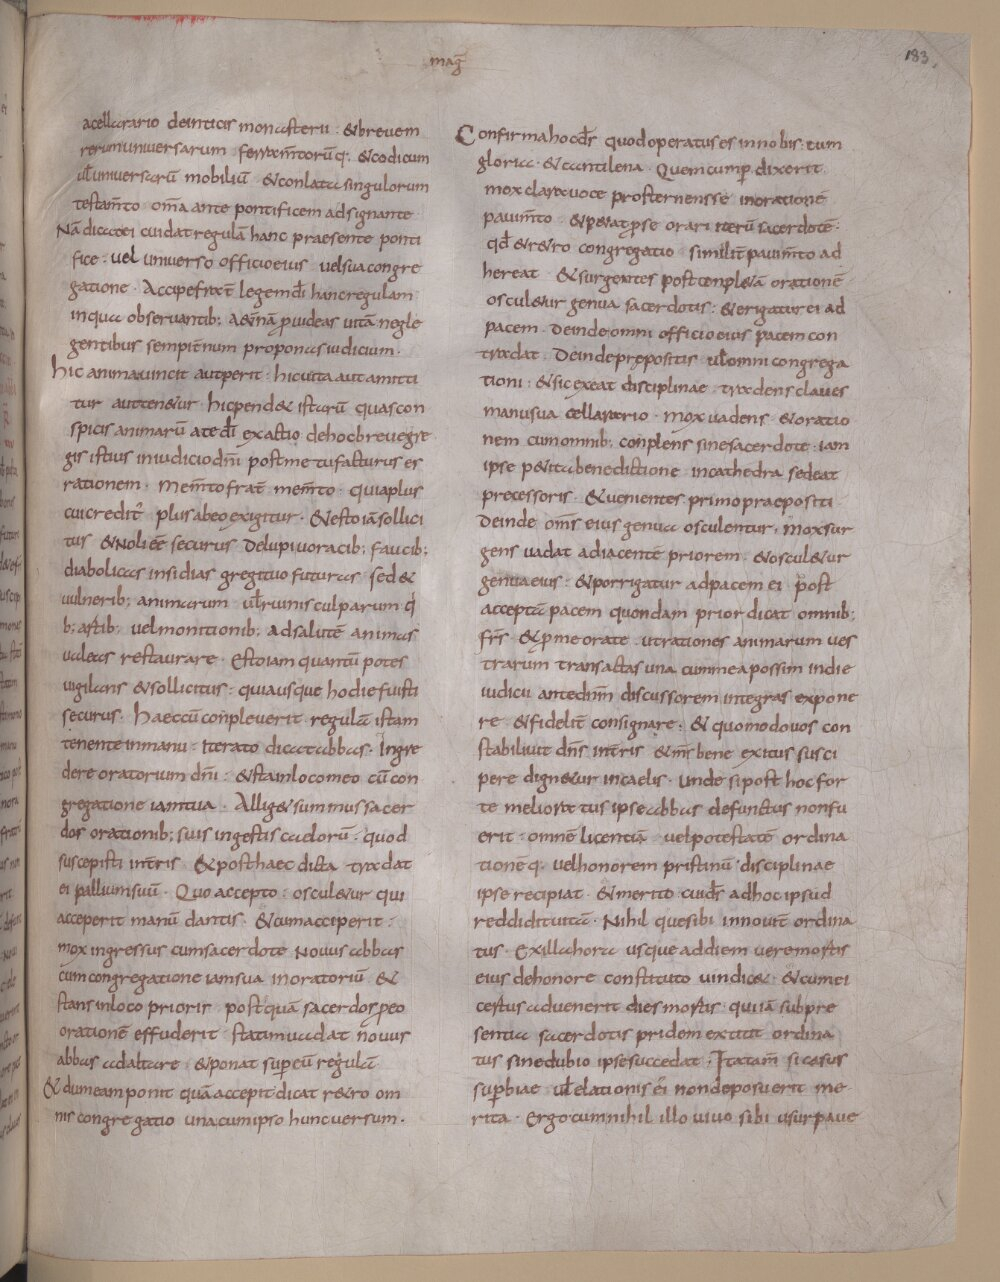 mag̃
183.
acellarario deinticis monasterii : &brevem
rerumuniversarum ferram̅torũq: &codicum
ul̅universarũ mobiliũ &conlata singulorum
testam̅to om̅a ante pontificem adsignante
Nã dicat ei cui dat regulã hanc praesente ponti
fice : vel universo officio eius vel sua congre
gatione · Accipe frat̅ legem di̅ hanc regulam
in qua observantib; a&̅nã ꝓvideas uitã negle
gentibus sempit̅num proponas iudicium ·
hic anima vincit aut perit : hic uita aut amitti
tur aut ten&ur · hic pend& istarũ quas con
spicis animarũ a te di̅ exactio de hoc breve gre
gis istius in iudicio dn̅i post me tu facturus es
rationem · Mem̅to frat̅ mem̅to · quia plus
cui credit᷑ plus ab eo exigitur · & esto iã sollici
tus & Noli ee̅ securus De lupi voracib; faucib;
diabolicas insidias gregi tuo futuras sed &
vulnerib; animarum ul̅ ruinis culparum q̅
b; astib; vel monitionib; ad salutẽ animas
valeas restaurare · Esto iam quantũ potes
vigilans & sollicitus : quia usque hodie fuisti
securus · haec cũ cõpleverit regulã istam
tenente in manu : iterato dicat abbas · Ingre
dere oratorium dn̅i : & sta in loco meo cũ con
gregatione iam tua · Allig& summus sacer
dos orationib; suis ingestis ca adorũ · quod
suscepisti int̅ris & post haec dicta tradat
ei pallium suũ · Quo accepto : oscul&ur qui
acceperit manũ dantis · & cum acciperit :
mox ingressus cum sacerdote Novus abbas
cum congregatione iam sua in oratoriũ &
stans in loco prioris postquã sacerdos ꝓ eo
orationẽ effuderit statim vadat novus
abbas ad altare · & ponat sup̅ eũ regulã
& dum eam ponit quã accepit dicat retro om
nis congregatio una cum ipso hunc versum ·
Confirma hoc ds̅ quod operatus es in nobis · cum
gloria · & cantilena · Quem cum p̅ dixerit
mox clara voce prosternens se in orationẽ
pavim̅to · & p&at ꝓ se orari it̅rũ sacerdotẽ ·
qd̅ & retro congregatio similit̅ pavim̅to ad
hereat · & surgentes post conpl&ã orationẽ
oscul&ur genua sacerdotis : & erigatur ei ad
pacem · Deinde omni officio eius pacem con
tradat · Deinde prepositis ul̅ omni congrega
tioni : & sic exeat disciplinae tradens claves
manu sua cellarario · mox vadens & oratio
nem cum omnib; conplens sine sacerdote iam
ipse petita benedictione in cathedra sedeat
precessoris · & venientes primo praepositi
Deinde om̅s eius genua osculentur · Mox sur
gens vadat ad iacentẽ priorem · & oscul&ur
genua eius : & porrigatur ad pacem ei post
acceptã pacem quondam prior dicat omnib;
fr̅s & p̅ me orate ut rationes animarum ves
trarum transactas una cum mea possim in die
iudicii ante dn̅m discussorem integras expone
re · & fidelit̅ consignare · & quomodo vos con
stabilivit dn̅s int̅ris & m̅s bene exitus susci
pere dign&ur in caelis · Unde si post hoc for
te meliorat̅us ipse abbas defunctus non fu
erit : omnẽ licentiã vel potestatẽ ordina
tionẽq: vel honorem pristinũ disciplinae
ipse recipiat · & merito cui ds̅ ad hoc ipsud
reddidit vitã · Nihil que sibi in novit̅ ordina
tus · Ex illa hora usque ad diem vere mortis
eius de honore constituto vindic& · & cum ei
certus advenerit dies mortis · qui iã sub pre
sentia sacerdotis pridem extitit ordina
tus sine dubio ipse succedat · Ita tam̅ si casus
sup̅biae ul̅ elationis ei̅ non deposuerit me
rita · Ergo cum nihil illo vivo sibi usurpave